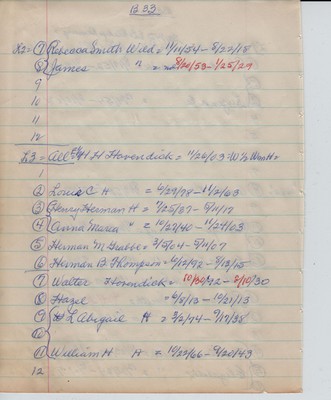 B33
L2= ⑦ Rebecca Smith Wild= 11/11/54- 5/22/18
⑧ James " = 8/20/53- 1/25/29
9
10
11
12
L3= All H H Havendick = 11/26/03 : W½
1
② Louis C H = 6/29/78- 11/2/03
③ Henry Herman H = 7/25/37-
④ Anna Maria " = 10/22/40- 11/24/03
⑤ Herman M Grabbe= 3/5/04- 9/11/07
⑥ Herman B Thompson= 6/12/92- 7/13/15
⑦ Walter Havendick= 10/30/92- 8/10/30
⑧ Hazel = 6/8/13- 10/21/13
⑨ L Abigail H = 3/2/74- 9/17/38
⑩
⑪ William H H = 10/22/66- 9/20/43
12